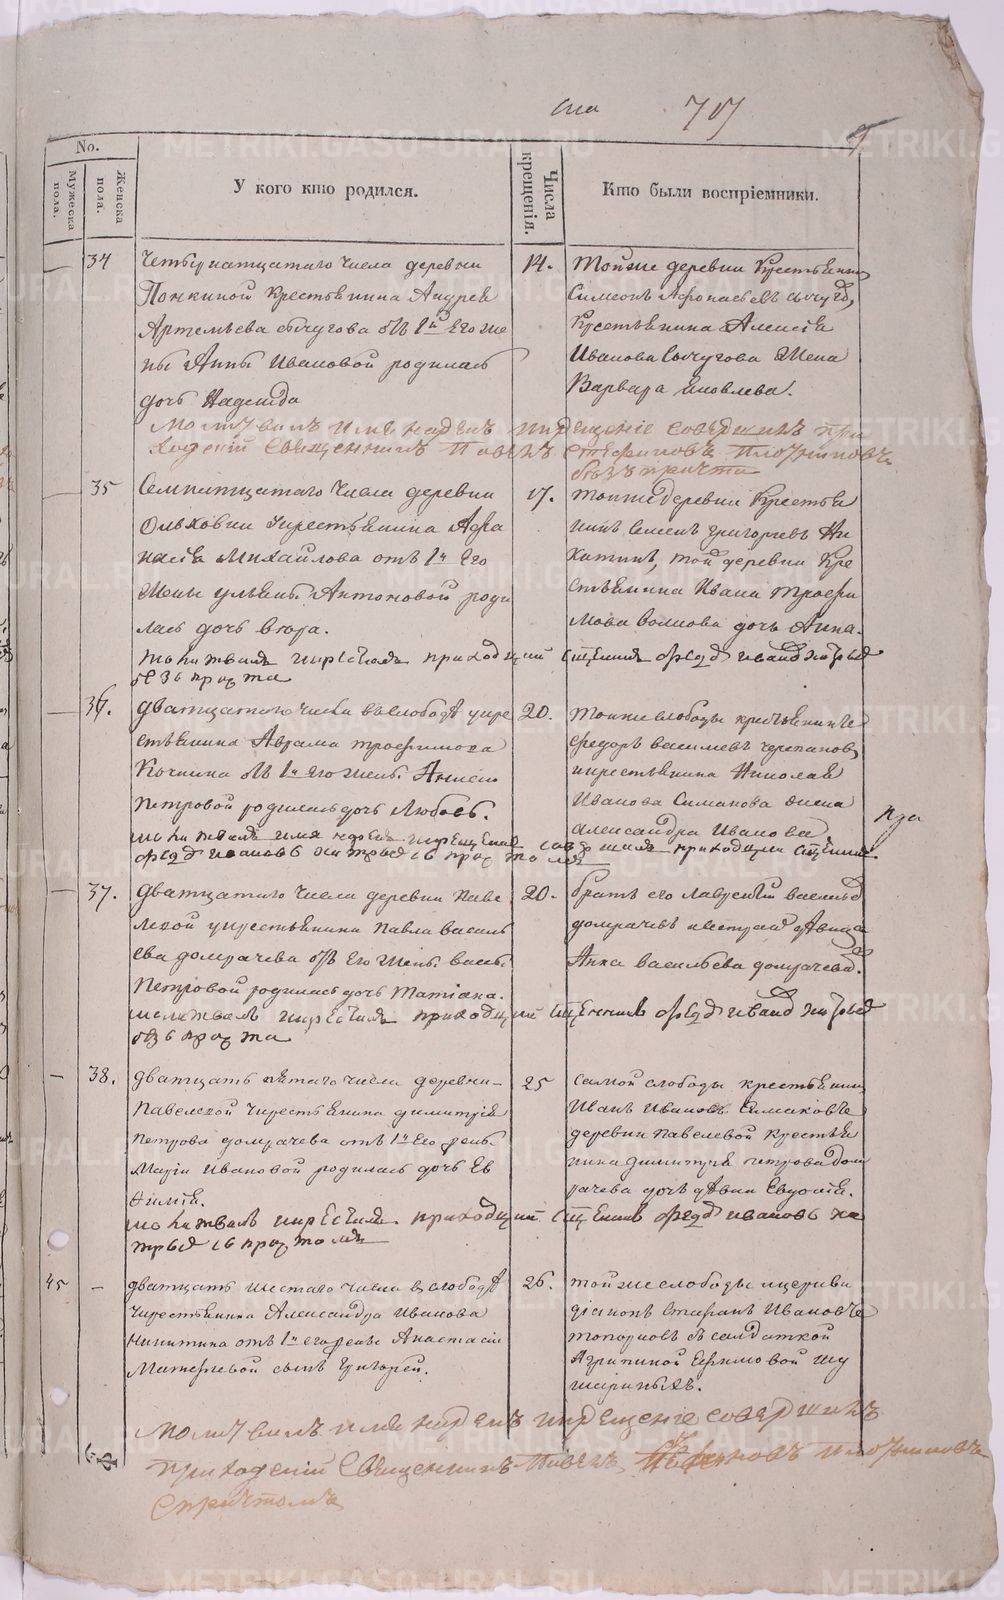 707
No.
Мужеска пола.
Женска пола.
У кого кто родился.
Числа крещенія.
Кто были воспріемники.
34
Четырнатцатаго числа деревни
крестьянина Андрея
Артемьева Сычугова отъ 1й его же
ны Анны Ивановой родилась
дочь Надежда
14.
Тойже деревни крестьянин
Симеонъ Афонасьевъ Сычугов,
крестьянина Алексѣя
Иванова Сычугова жена
Варвара Яковлева.
молитвилъ имя нареклъ крещеніе совершилъ при
ходскій священникъ Павелъ Стефановъ Плотниковъ
безъ причта
35
Семнатцатаго числа деревни
Ольховки крестьянина Афа
насія Михайлова отъ 1й его
жены Ульяны Антоновой роди
лась дочь Вѣра.
17.
Тойже деревни крестья
нинъ Семенъ Григорьевъ Ни
китинъ, той деревни кре
стьянина Ивана Трофи
мова Волкова дочь Анна.
молитвилъ и крестилъ приходский священник Федор Иванов
безъ причта
36.
Дватцатаго числа в слободѣ у кре
стьянина Аврама Трофимова
Кочнина отъ 1й его жены Анисіи
Петровой родилась дочь Любовь.
20.
Тойже слободы крестьянинъ
Федоръ Васильевъ Черепанов,
и крестьянина Николая
Иванова Симанова жена
Александра Иванова
молитвилъ имя нарекъ и крещение совершилъ приходский священник
Федор Ивановъ с причтомъ
37.
Дватцатаго числа деревни Паве
левой у крестьянина Павла Василь
ева Домрачева отъ его жены Васы
Петровой родилась дочь Татіана.
20.
братъ его Лаврентий Васильев
Домрачевъ и сестра девица
Анна Васильева Домрачева.
молитвалъ и крестилъ приходский священникъ Федор Иванов
безъ причта
38.
Дватцать пятаго числа деревни
Павелевой у крестьянина Димитрія
Петрова Домрачева отъ 1й его жены
Маріи Ивановой родилась дочь Ев
ѳимія.
25
самой слободы крестьянин
Иванъ Ивановъ Симаковъ
деревни Павелевой крестья
нина Димитрія Петрова Дом
рачева дочь дѣвка Евдокія.
молитвалъ и крестилъ приходский священникъ Федор Ивановъ
с причтомъ
45
Дватцать шестаго числа в слободѣ
у крестьянина Александра Иванова
Никитина отъ 1й его жены Анастасіи
Матвѣевой сынъ Григорей.
26.
Тойже слободы церкви
діяконъ Стефанъ Ивановъ
Топорковъ с солдаткой
Агрипиной Ефимовой
молитвилъ имя нареклъ крещеніе совершилъ
приходскій священникъ Павелъ Стефановъ Плотниковъ
с причтомъ
METRIKI.GASO-URAL.RU